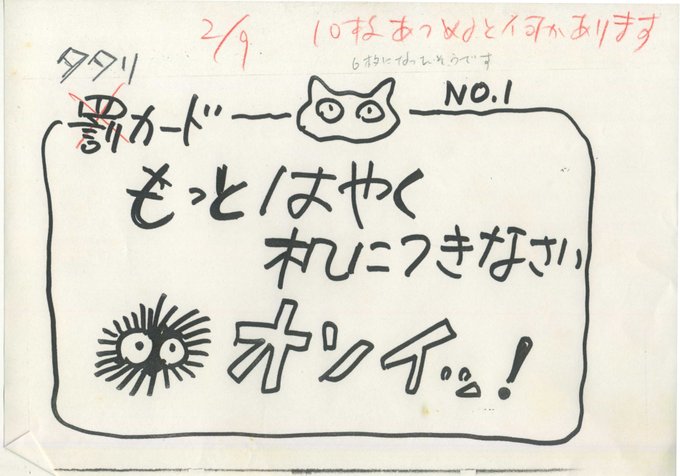 2/9 10枚あつめると何かあります
6枚になったそうです
タタリ
罰カード NO.1
もっとはやく
机につきなさい
オソイッ!